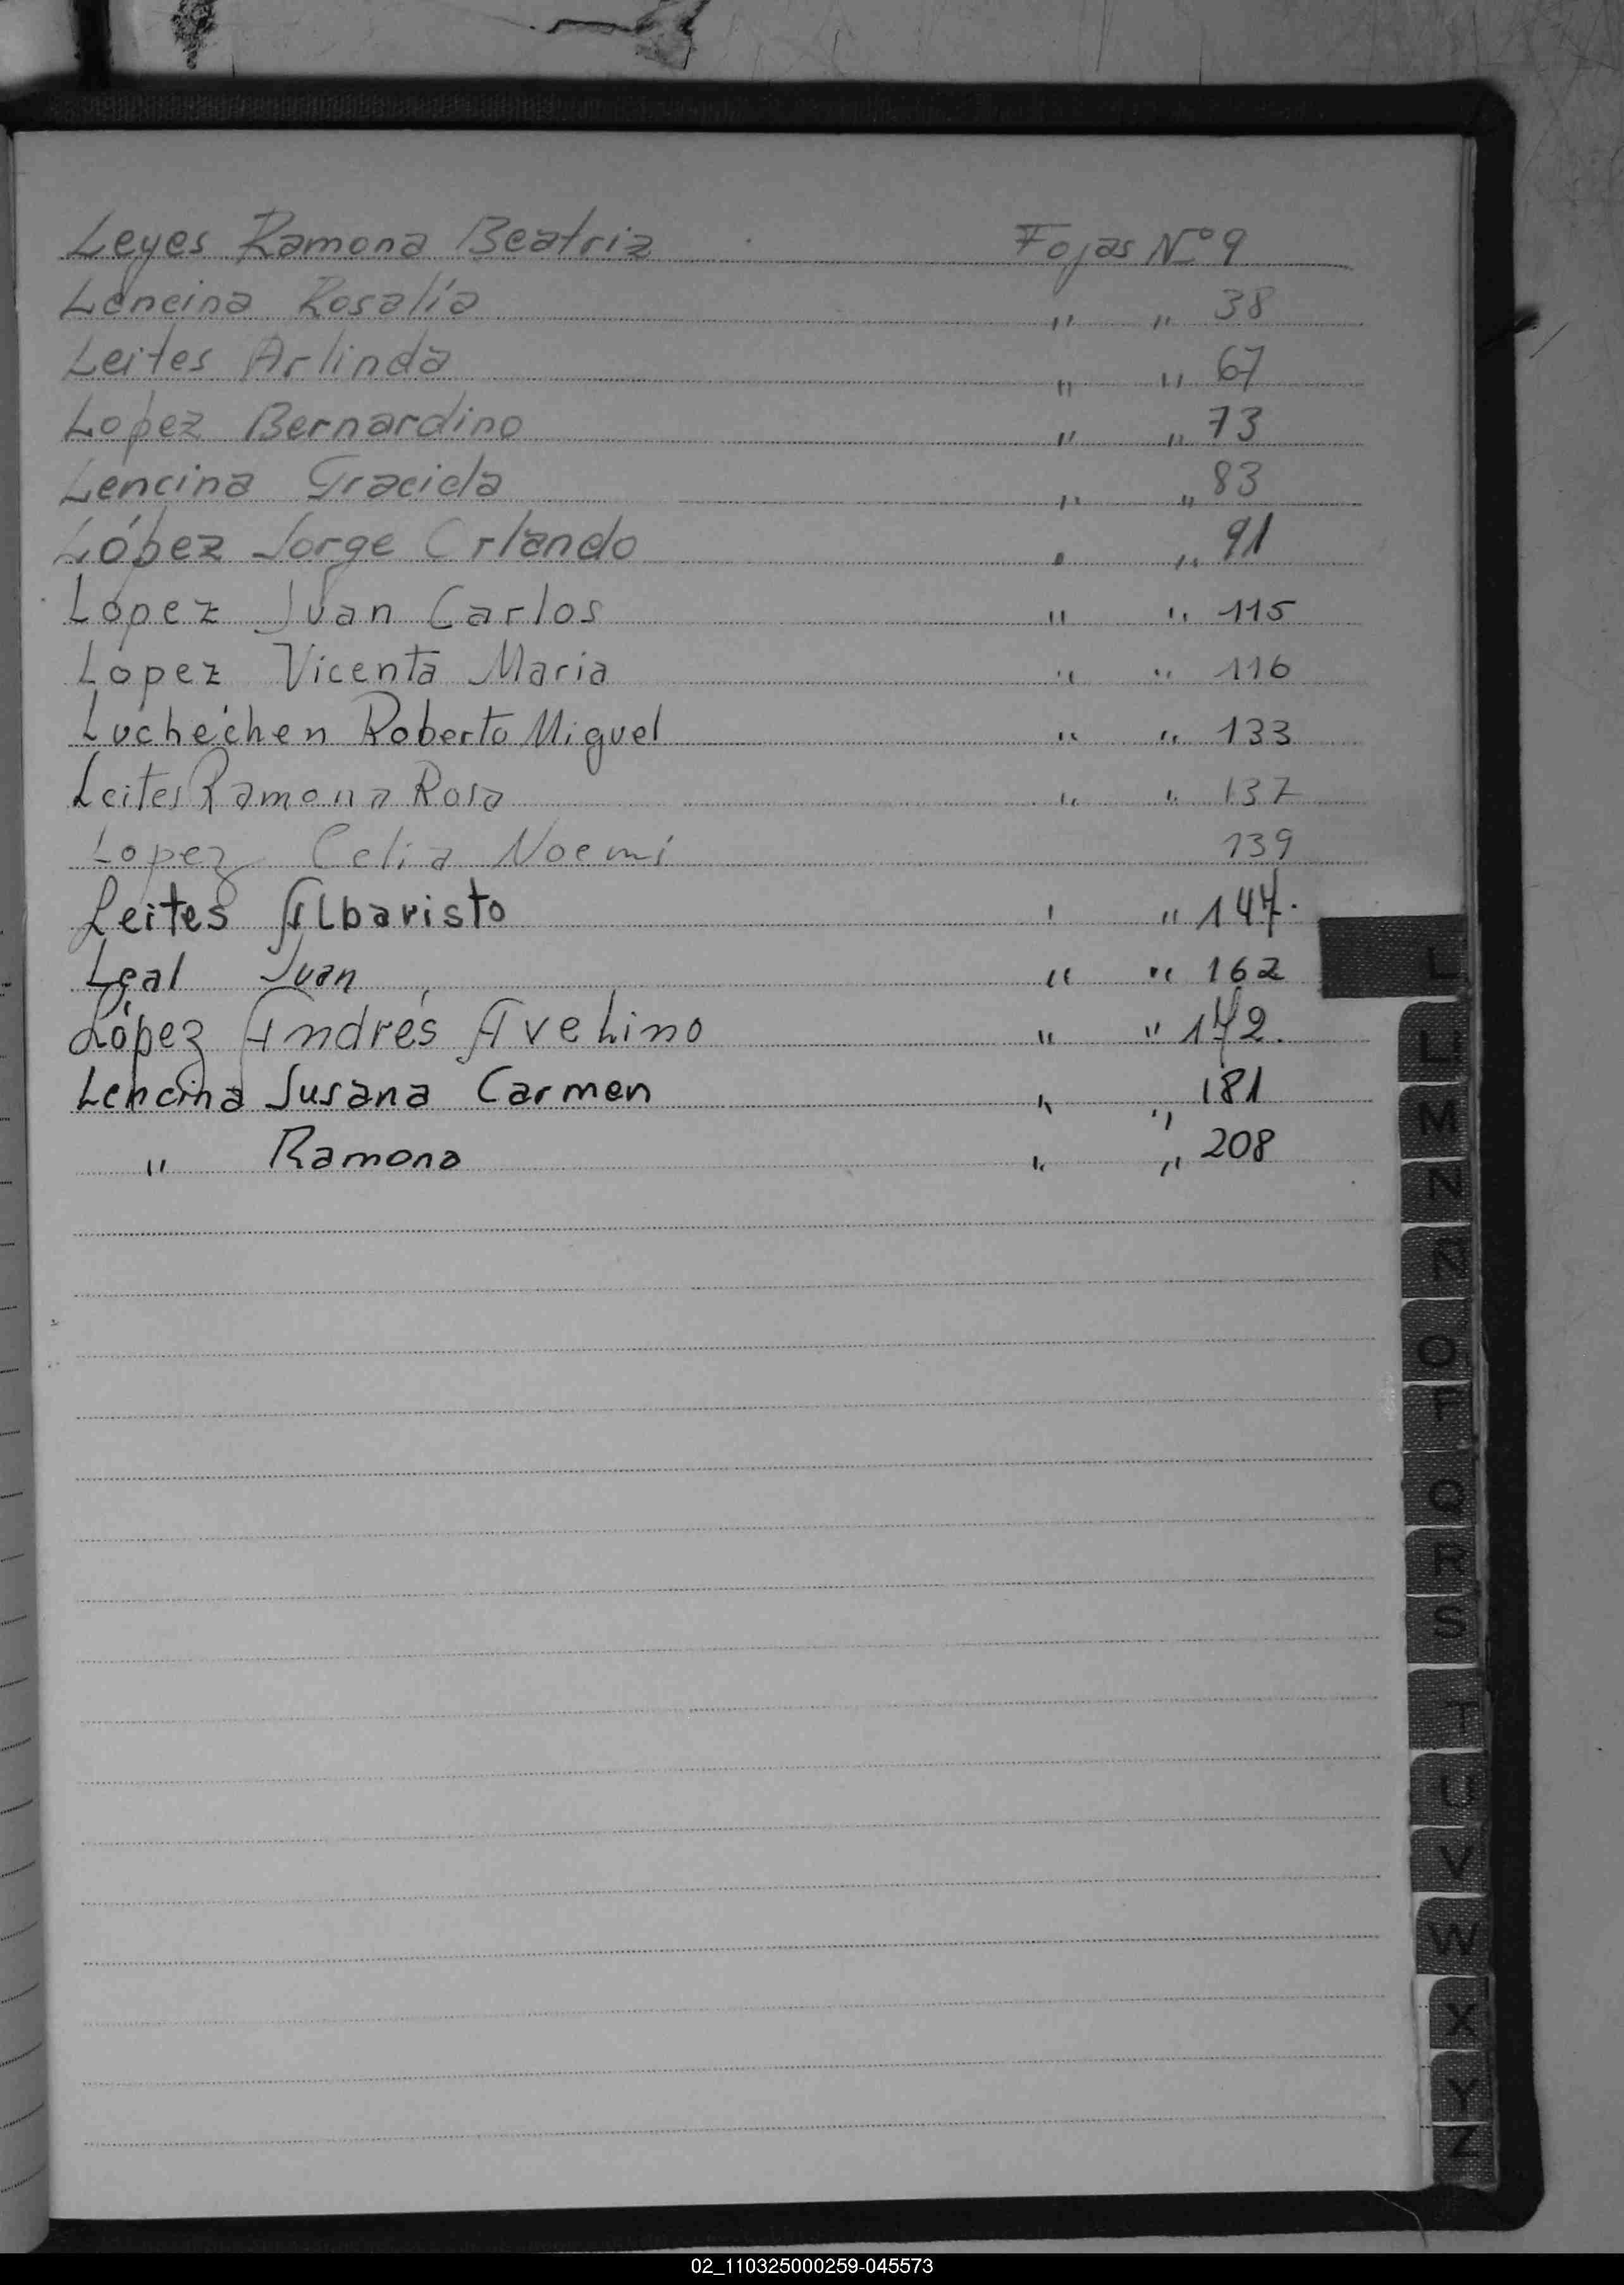 Leyes Ramona Beatriz Fojas Nº 9
Lencina Rosalía " " 38
Leites Arlinda " " 67
Lopez Bernardino " " 73
Lencina Graciela " " 83
López Jorge Orlando " " 91
Lopez Juan Carlos " " 115
Lopez Vicenta Maria " " 116
Luchechen Roberto Miguel " " 133
Leites Ramona Rosa " " 137
Lopez Celia Noemí 139
Leites Albaristo " " 147.
Leal Juan " " 162
López Andrés Avelino " " 172.
Lencina Susana Carmen " " 181
" Ramona " " 208
L
LL
M
N
Ñ
O
P
Q
R
S
T
U
V
W
X
Y
Z
02_110325000259-045573